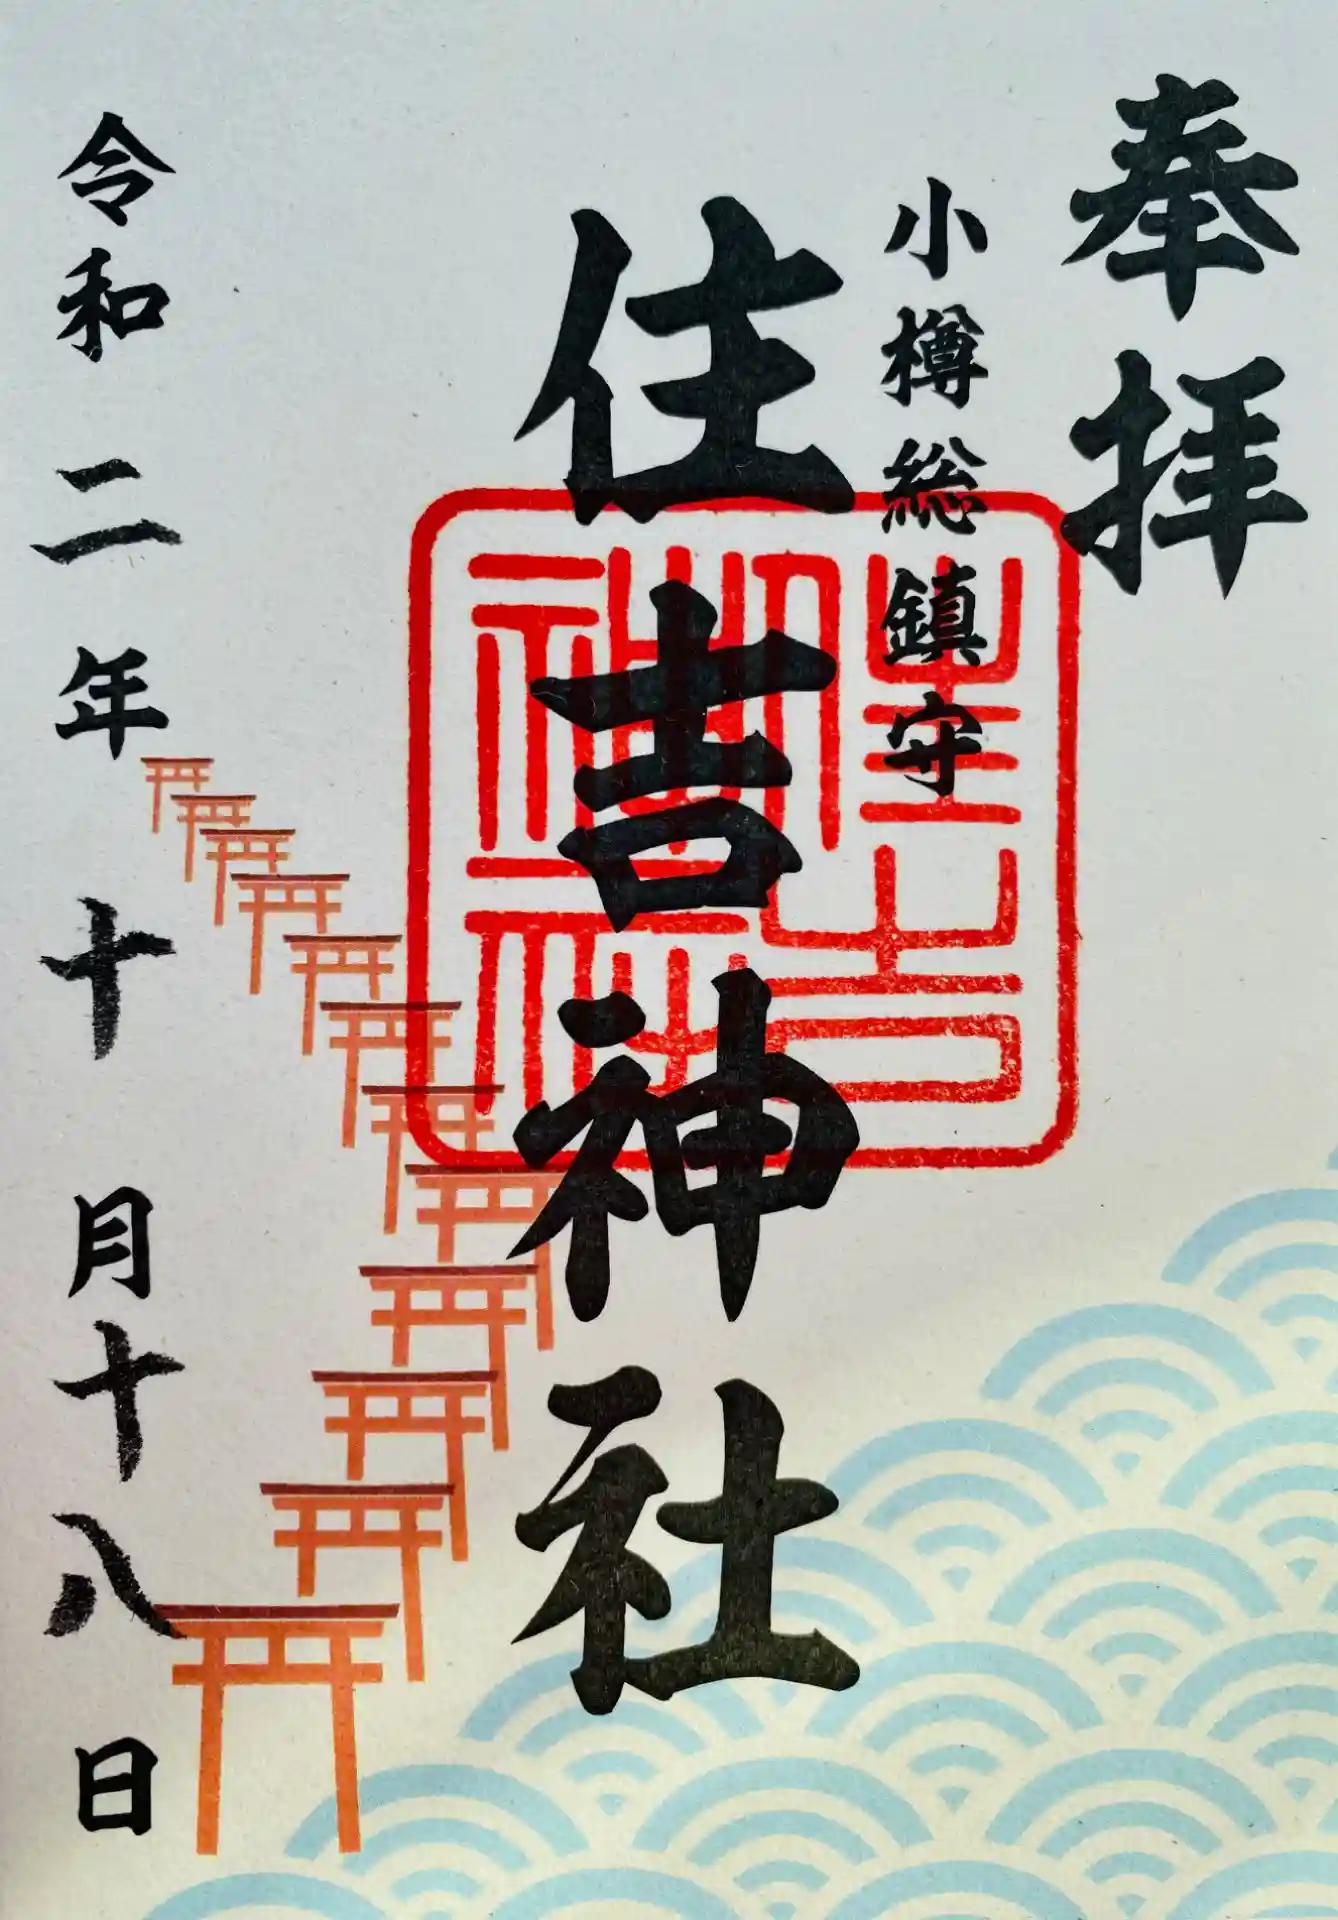 奉拝
小樽総鎮守
住吉神社
住吉神社
令和二年十月十八日